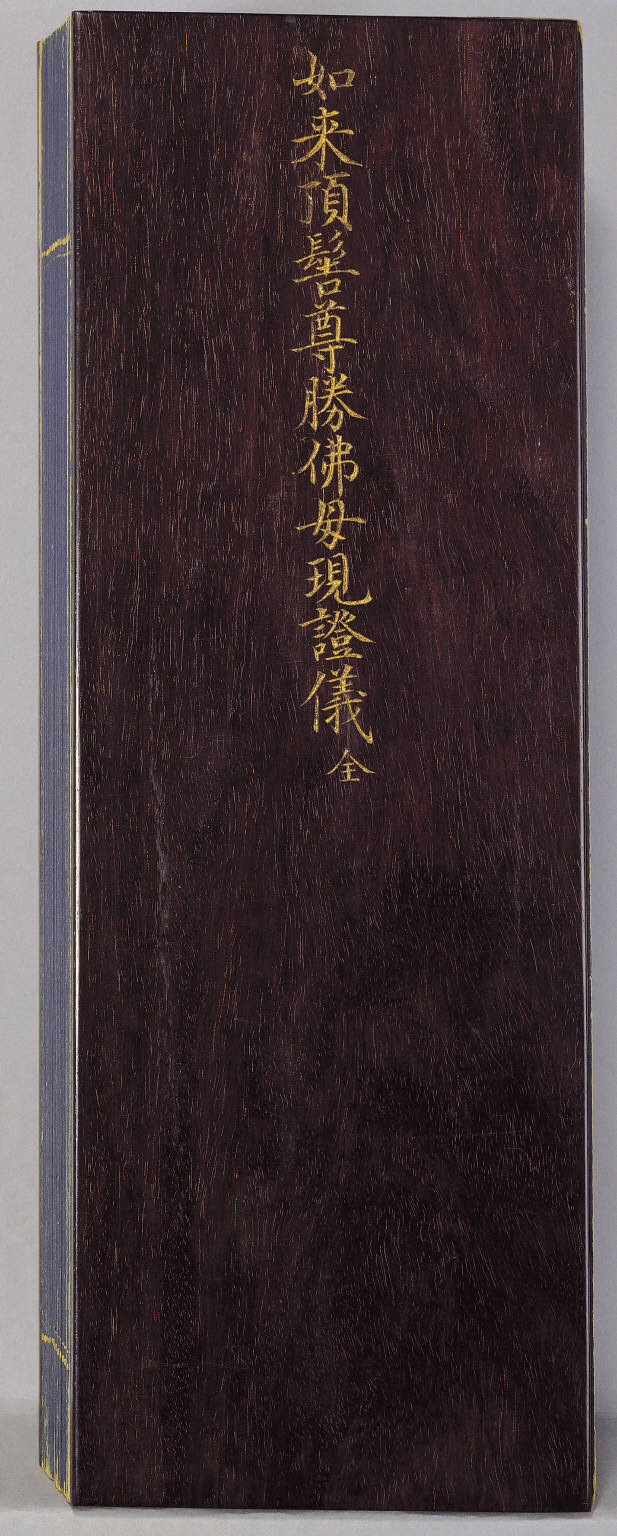 如来頂髻尊勝佛母現證儀全